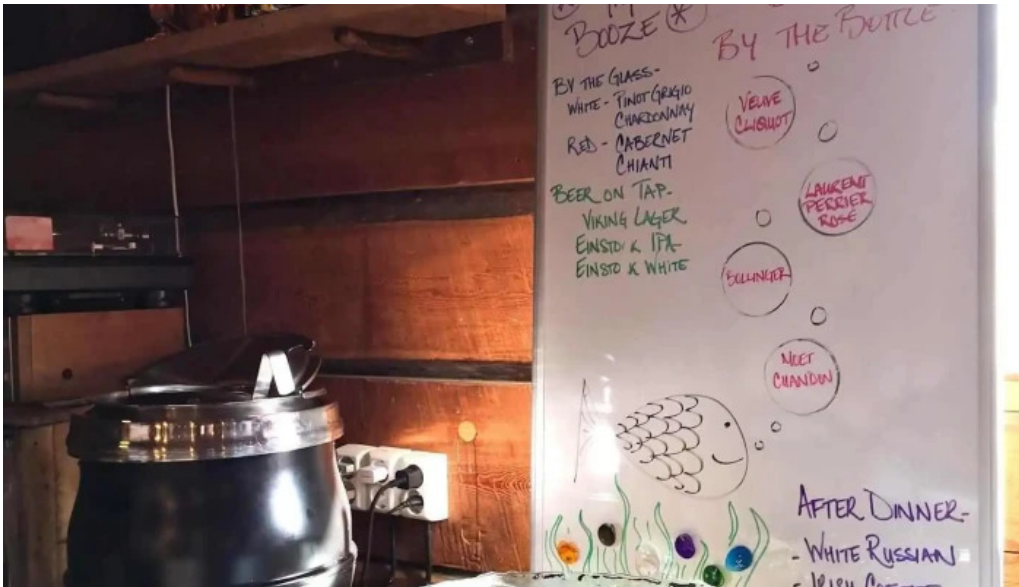 BOOZE
BY THE GLASS-
WHITE - PINOT GRIGIO
CHARDONNAY
RED - CABERNET
CHIANTI
BEER ON TAP-
VIKING LAGER
EINSTO K IPA-
EINSTO K WHITE
BY THE BOTTLE
VEUVE
CLIQUOT
LAURENT
PERRIER
ROSE
BOLLINGER
MOET
CHANDON
AFTER DINNER-
- WHITE RUSSIAN
- IRISH COFFEE